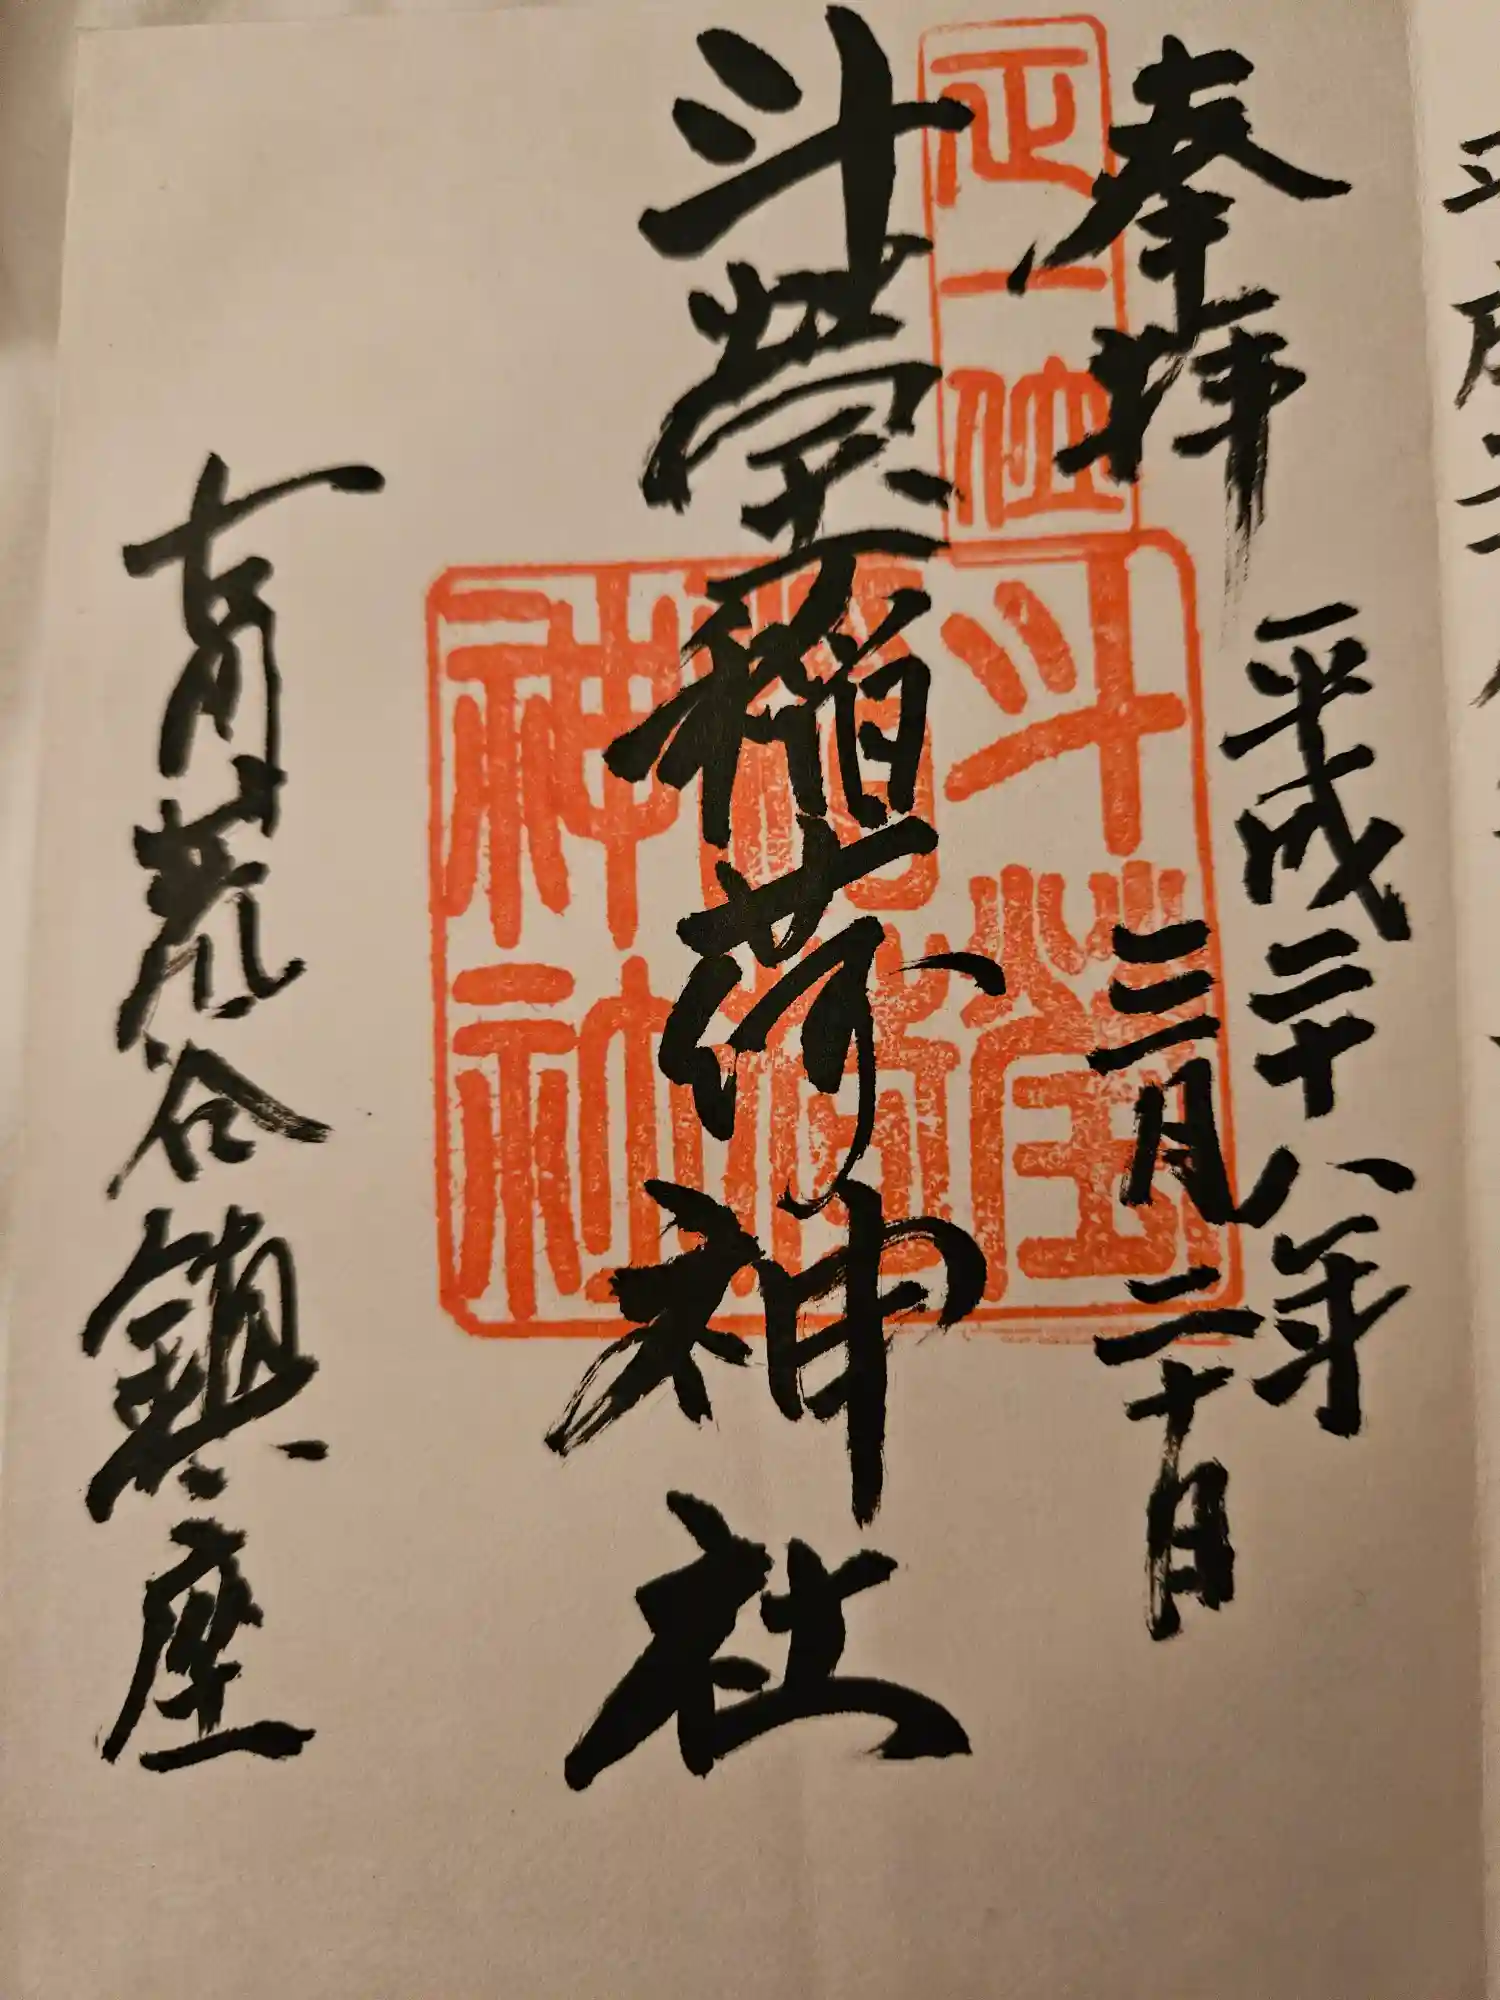 奉拝
平成二十八年
三月二十日
正一位
斗瑩稲荷神社
斗瑩
稲荷
神社
古川荒谷鎮座